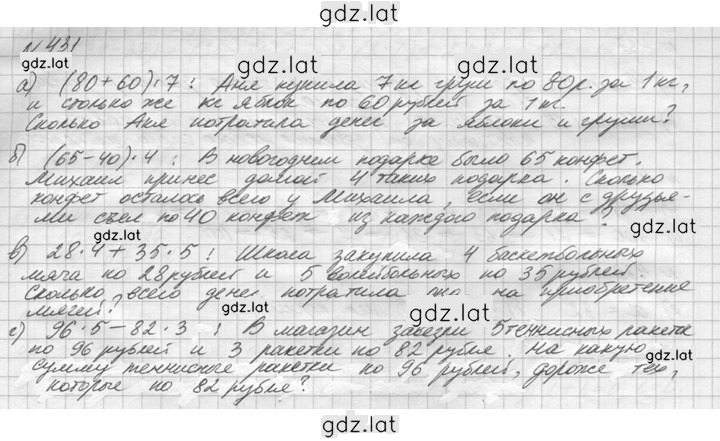 gdz.lat
№431
gdz.lat
а) (80+60)·7 : Аня купила 7 кг груш по 80р. за 1 кг,
и столько же кг яблок по 60 рублей за 1 кг.
Сколько Аня потратила денег за яблоки и груши?
gdz.lat gdz.lat
б) (65-40)·4 : В новогоднем подарке было 65 конфет.
Михаил принес домой 4 таких подарка. Сколько
конфет осталось всего у Михаила, если он с друзья-
ми съел по 40 конфет из каждого подарка?
gdz.lat gdz.lat
в) 28·4+35·5 : Школа закупила 4 баскетбольных
мяча по 28 рублей и 5 волейбольных по 35 рублей.
Сколько всего денег потратила на приобретение
мячей?
gdz.lat gdz.lat
г) 96·5-82·3 : В магазин завезли 5 теннисных ракеток
по 96 рублей и 3 ракетки по 82 рубля. На какую
сумму теннисные ракетки по 96 рублей, дороже тех,
которые по 82 рубля?
gdz.lat
gdz.lat
gdz.lat